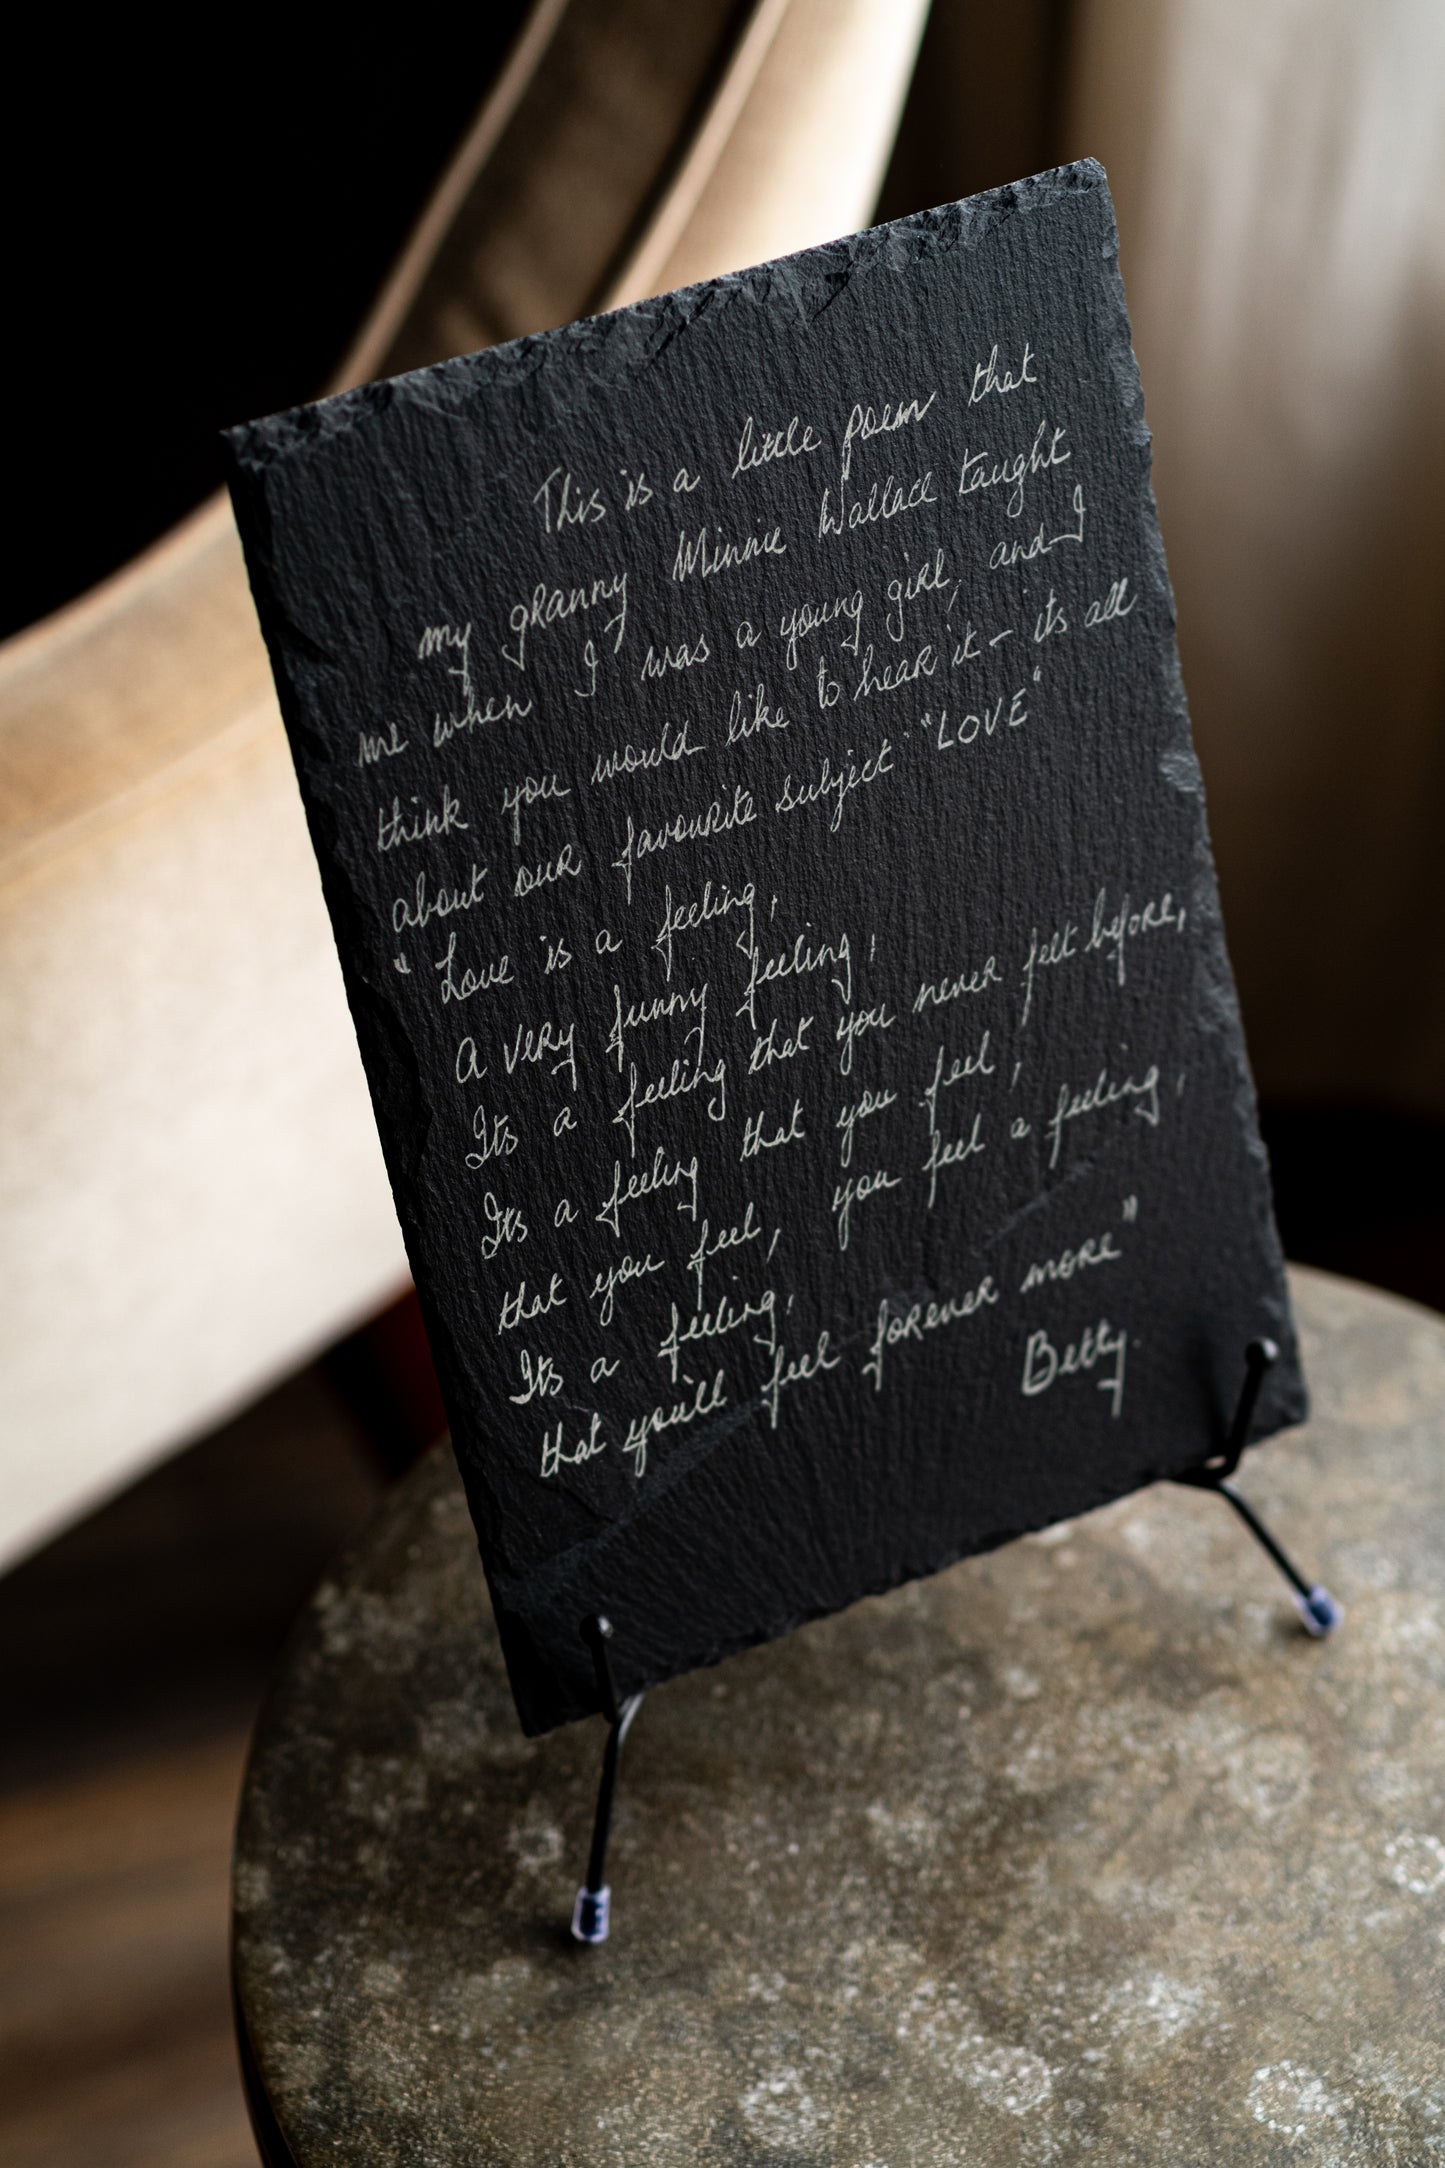 This is a little poem that
my granny Minnie Wallace taught
me when I was a young girl, and I
think you would like to hear it - its all
about our favourite subject "LOVE"
"Love is a feeling,
A very funny feeling,
Its a feeling that you never felt before,
Its a feeling that you feel,
that you feel, you feel a feeling,
Its a feeling,
that you'll feel forever more"
Betty.